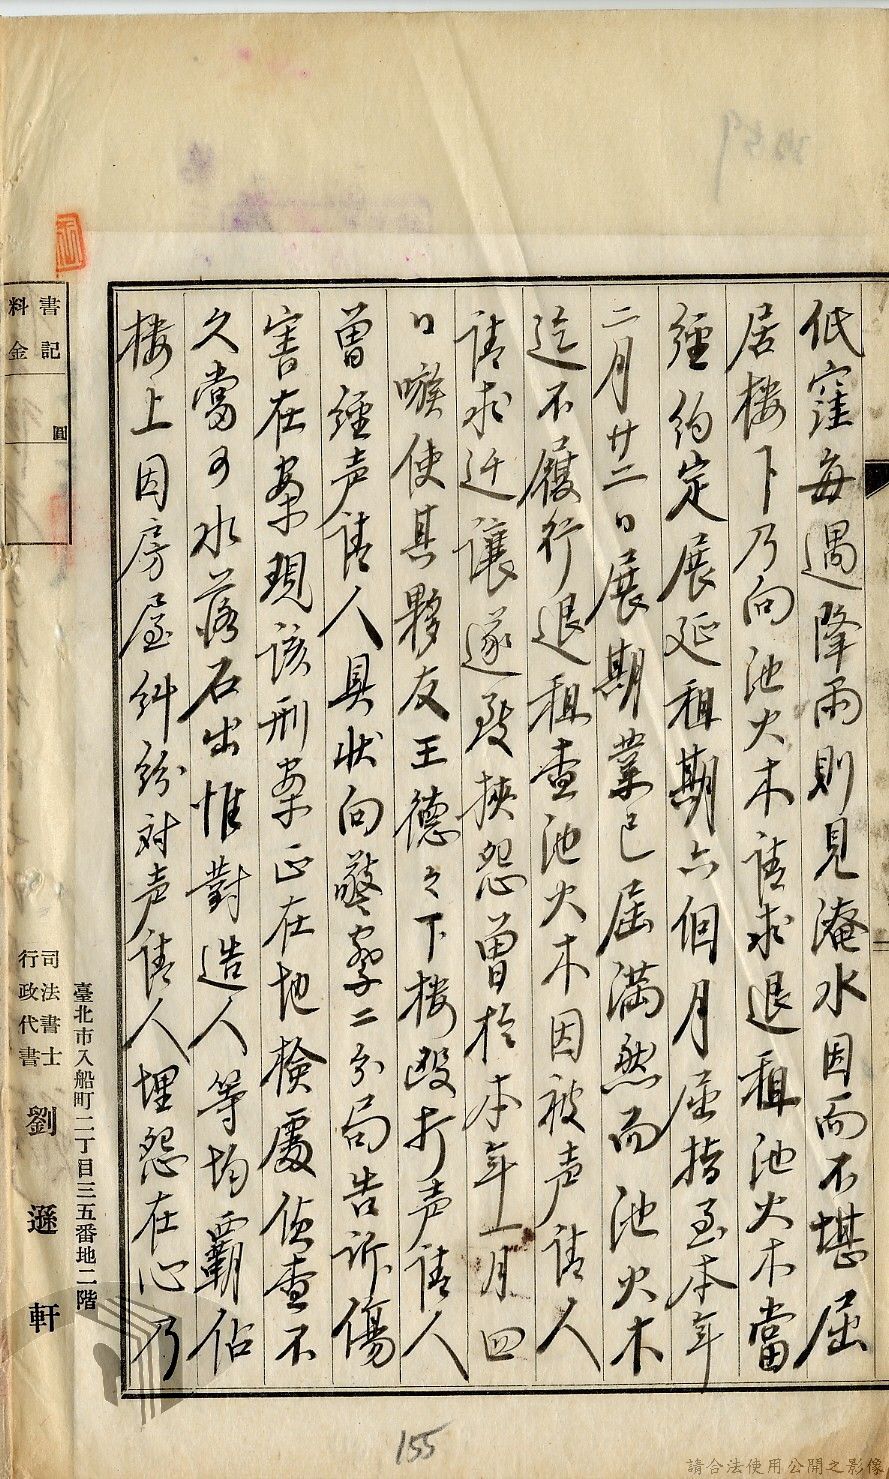 低窪每遇降雨則見淹水因而不堪屈
居楼下乃向池火木請求退租池火木當
經約定展延租期六個月屈指至本年
二月廿二日展期業已屆滿然而池火木
迄不履行退租查池火木因被声請人
請求迁讓遂致挾怨曾於本年一月四
日嗾使其夥友王德々下楼毆打声請人
曾經声請人具状向警察二分局告訴傷
害在案現該刑案正在地檢處偵查不
久當可水落石出惟對造人等均霸佔
楼上因房屋糾紛对声請人埋怨在心乃
臺北市入船町二丁目三五番地二階
司法書士
行政代書
劉遜軒
書記
料金
圓
155
請合法使用公開之影像